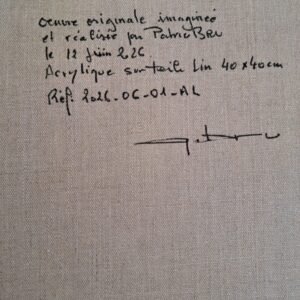 oeuvre originale imaginée
et réalisée par Patrice BRU
le 12 juin 2026
Acrylique sur toile Lin 40x40cm
Réf. 2026-06-01-AL